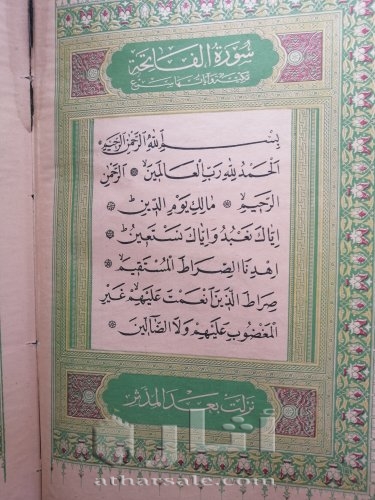 سُورَةُ الفَاتِحَةِ
مكية وآياتها سبع
بِسْمِ اللهِ الرَّحْمٰنِ الرَّحِيمِ
اَلْحَمْدُ لِلّٰهِ رَبِّ الْعَالَمِينَ ۞ اَلرَّحْمٰنِ
الرَّحِيمِ ۞ مَالِكِ يَوْمِ الدِّينِ ۞
اِيَّاكَ نَعْبُدُ وَاِيَّاكَ نَسْتَعِينُ ۞
اِهْدِنَا الصِّرَاطَ الْمُسْتَقِيمَ ۞
صِرَاطَ الَّذِينَ اَنْعَمْتَ عَلَيْهِمْ غَيْرِ
الْمَغْضُوبِ عَلَيْهِمْ وَلَا الضَّالِّينَ ۞
نزلت بعد المدثر
أثار
atharsale.com